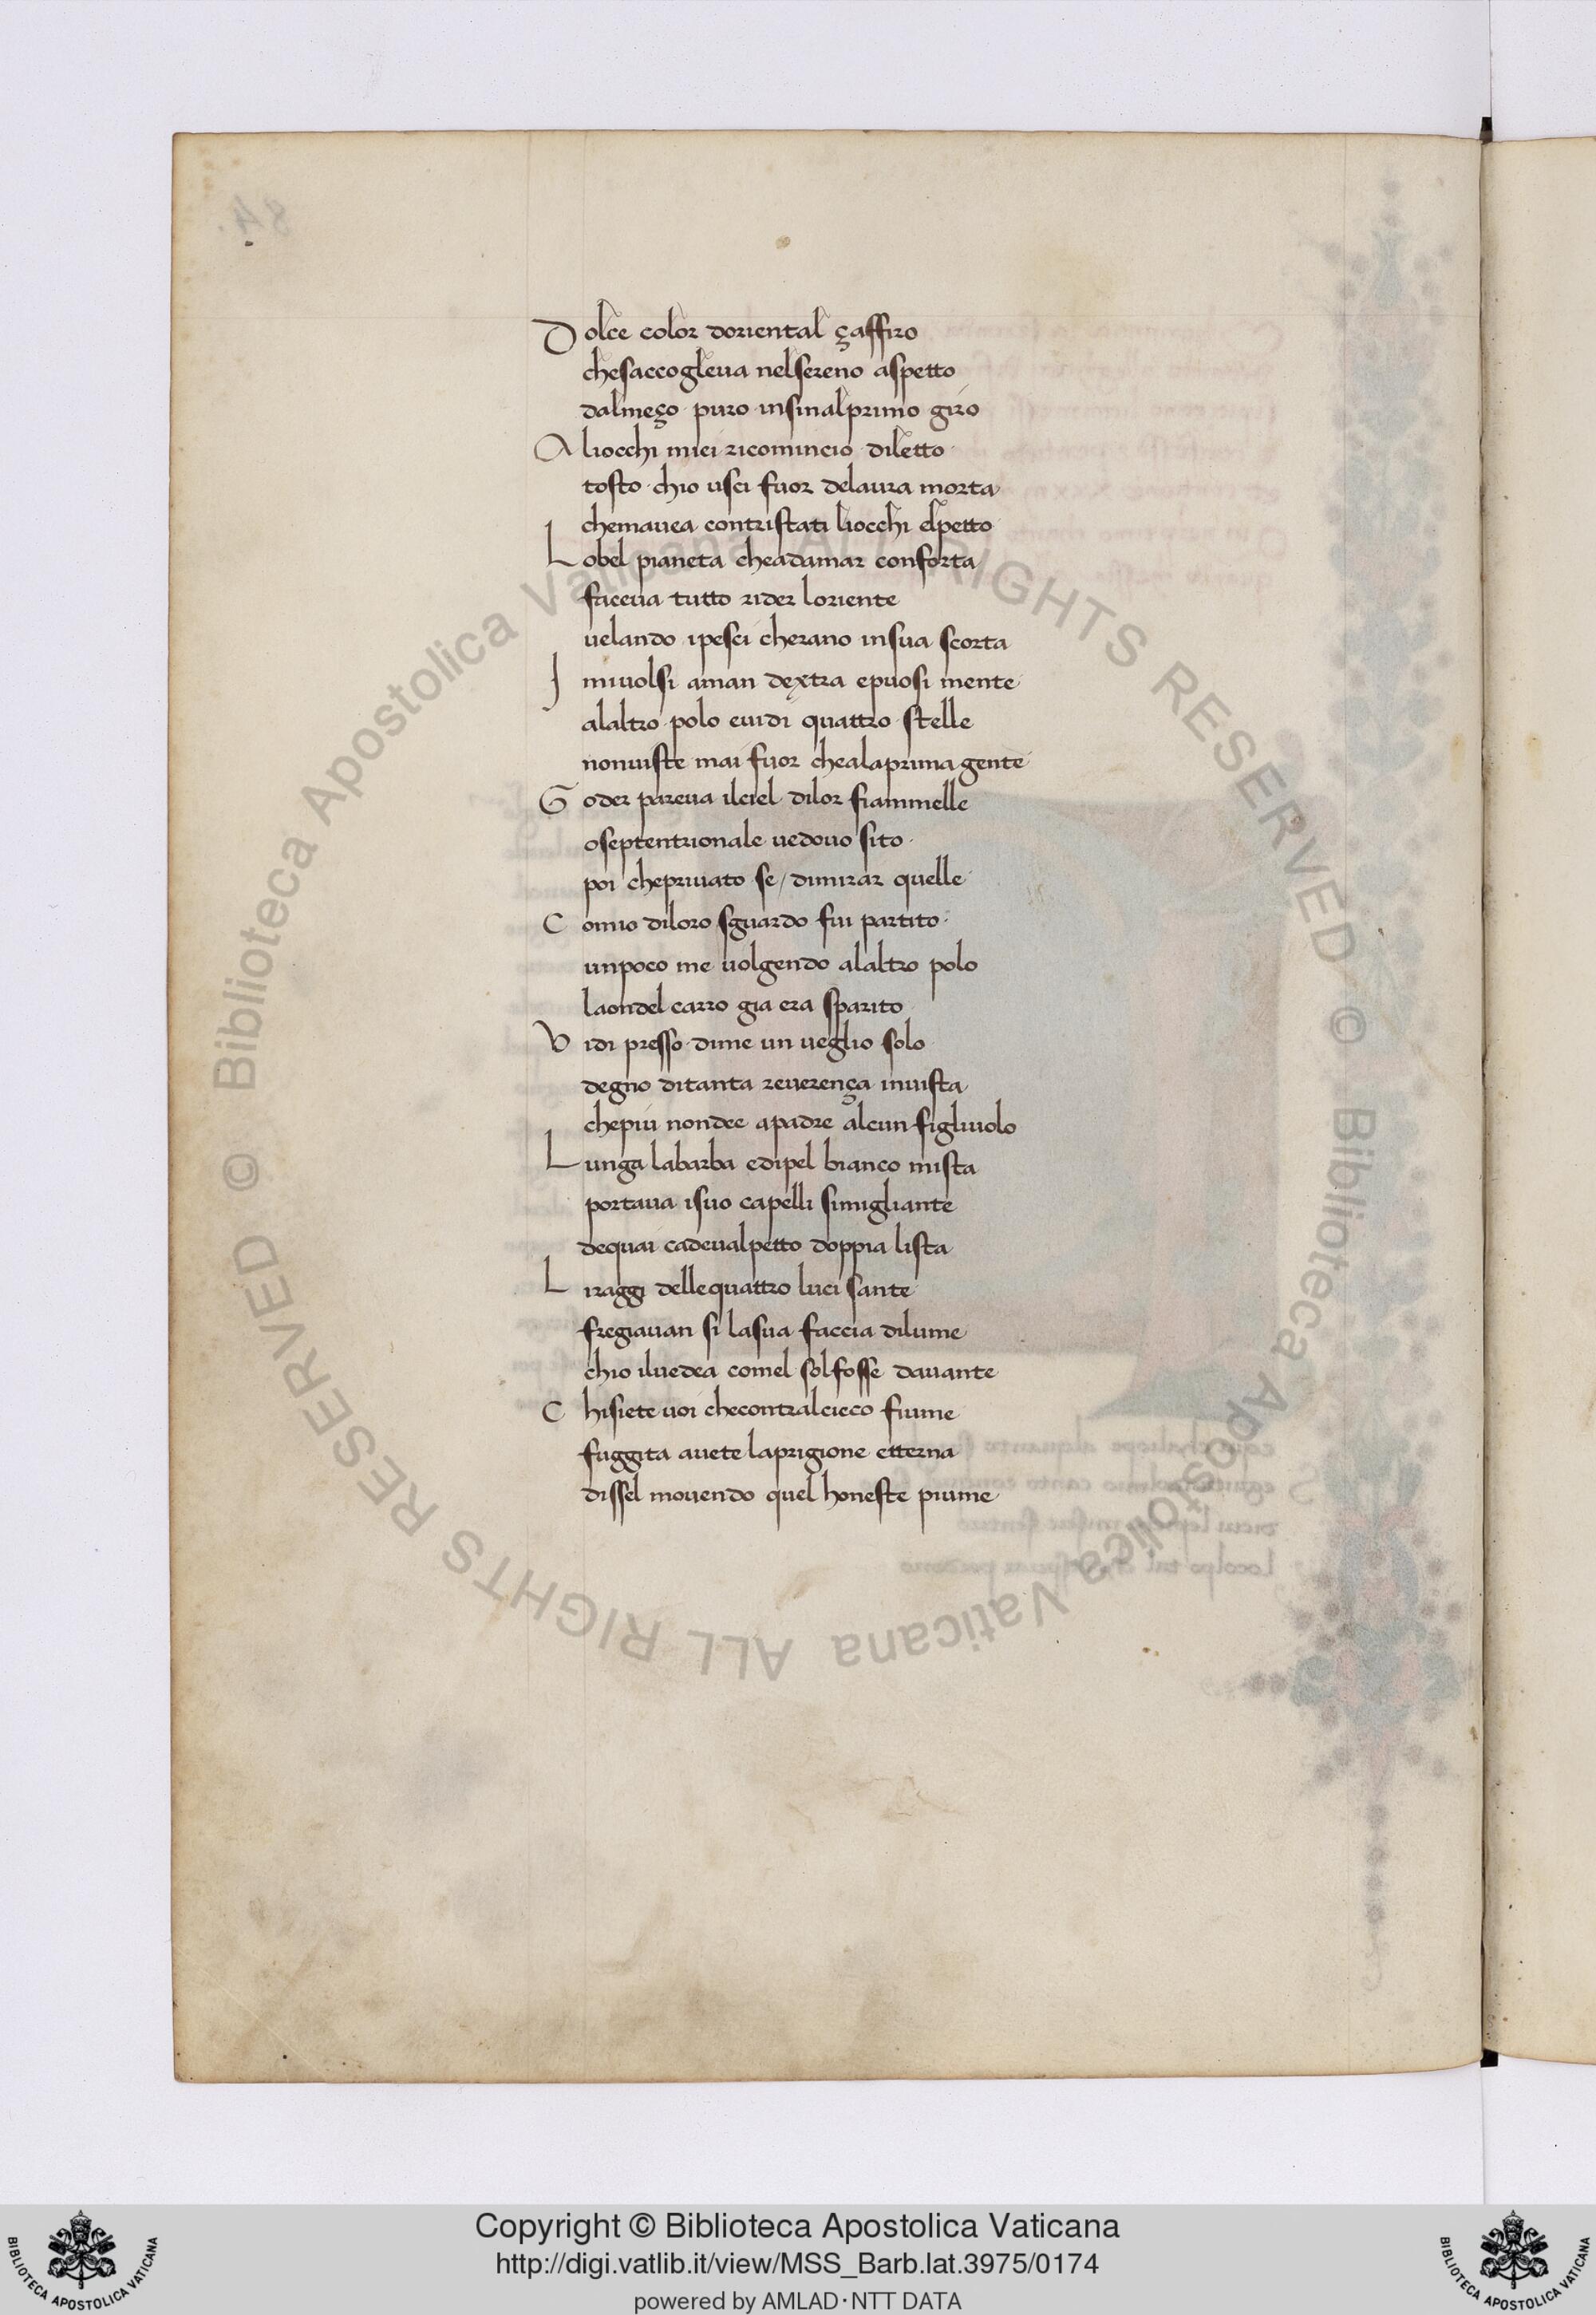 Dolce color doriental çaffiro
chesaccogleua nelsereno aspetto
dalmeço puro insinalprimo giro
Aliocchi miei ricomincio diletto
tosto chio usci fuor delaura morta
chemauea contristati liocchi elpetto
Lobel pianeta cheadamar conforta
faceua tutto rider loriente
uelando ipesci cherano insua scorta
I miuolsi aman dextra epuosi mente
alaltro polo euidi quattro stelle
nonuiste mai fuor chealaprima gente
Goder pareua ilciel dilor fiammelle
oseptentrionale uedouo sito
poi chepriuato se/ dimirar quelle
Comio diloro sguardo fui partito
unpoco me uolgendo alaltro polo
laondel carro gia era sparito
Vidi presso dime un ueglio solo
degno ditanta reuerença inuista
chepiu nondee apadre alcun figliuolo
Lunga labarba edipel bianco mista
portaua isuo capelli simigliante
dequai cadeualpetto doppia lista
L iraggi dellequattro luci sante
fregiauan si lasua faccia dilume
chio iluedea comel solfosse dauante
Chisiete uoi checontralcieco fiume
fuggita auete laprigione etterna
dissel mouendo quel honeste piume
Copyright © Biblioteca Apostolica Vaticana
http://digi.vatlib.it/view/MSS_Barb.lat.3975/0174
powered by AMLAD·NTT DATA
BIBLIOTECA APOSTOLICA VATICANA
BIBLIOTECA APOSTOLICA VATICANA
© Biblioteca Apostolica Vaticana ALL RIGHTS RESERVED © Biblioteca Apostolica Vaticana ALL RIGHTS RESERVED